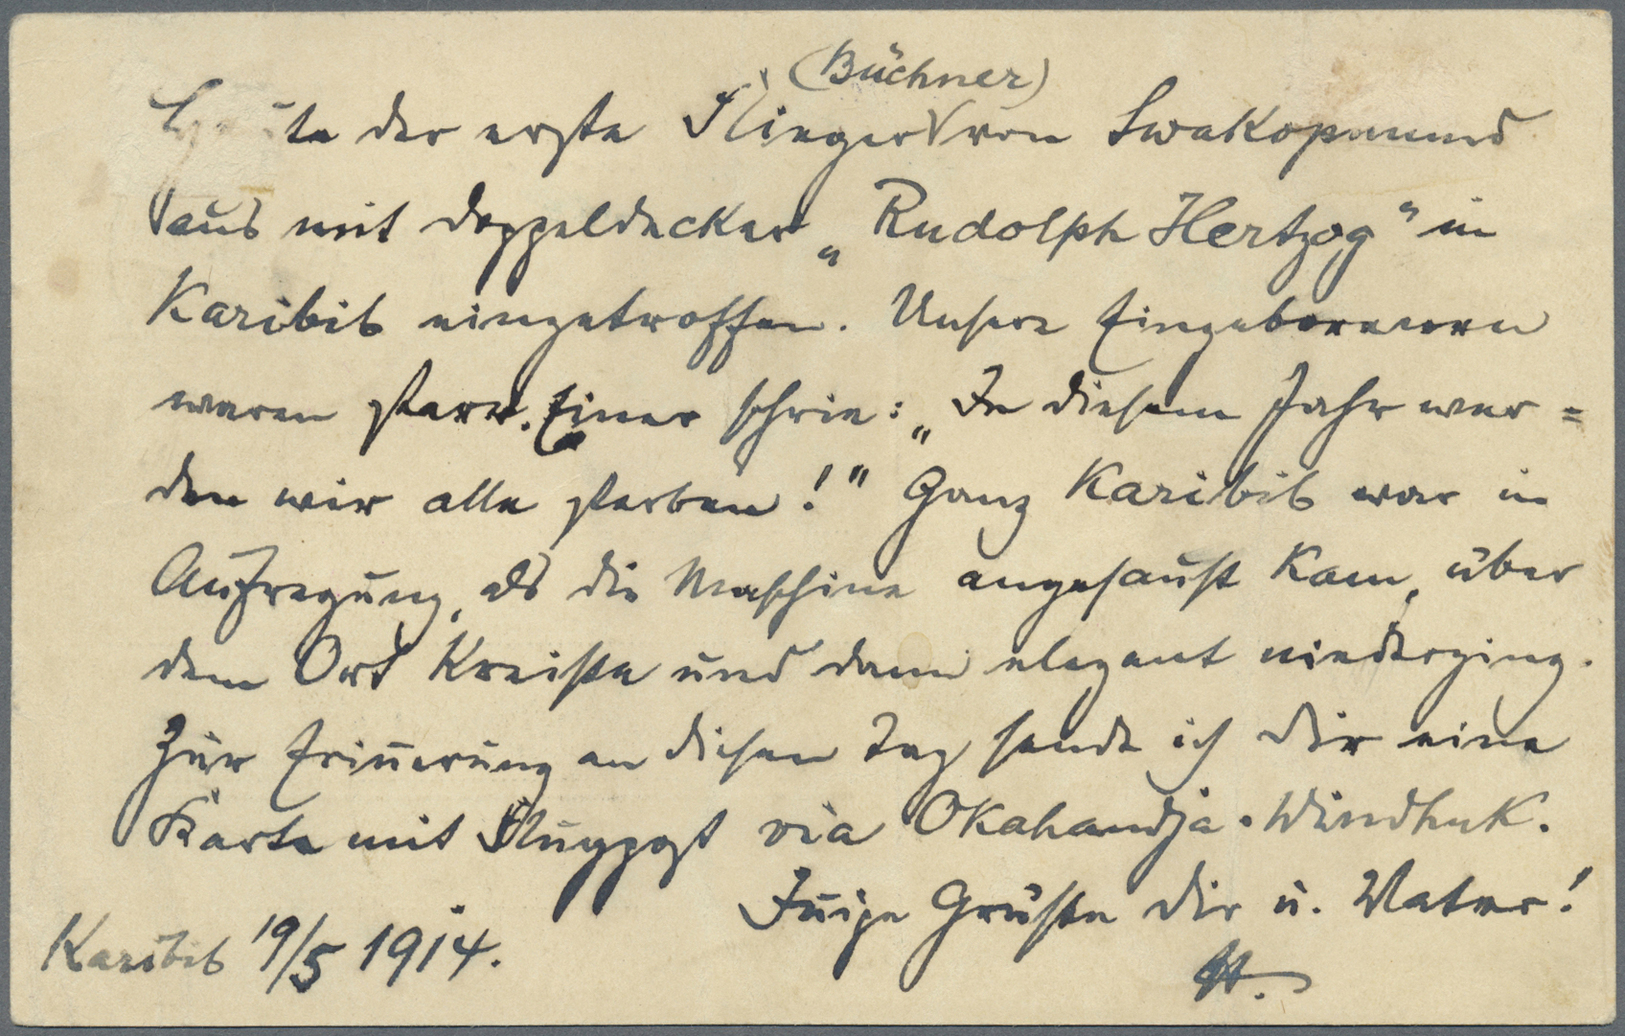 (Büchner)
der erste Flieger von Swakopmund
aus mit Doppeldecker „Rudolph Hertzog" in
Karibib eingetroffen. Unsere Eingeborenen
waren starr. Einer schrie: „In diesem Jahr wer=
den wir alle sterben!" Ganz Karibib war in
Aufregung, als die Maschine angesaust kam, über
dem Ort kreiste und dann elegant niederging.
Zur Erinnerung an diesen Tag sende ich Dir eine
Karte mit Flugpost via Okahandja-Windhuk.
Grüße Dir u. Vater!
Karibib 19/5 1914.
H.